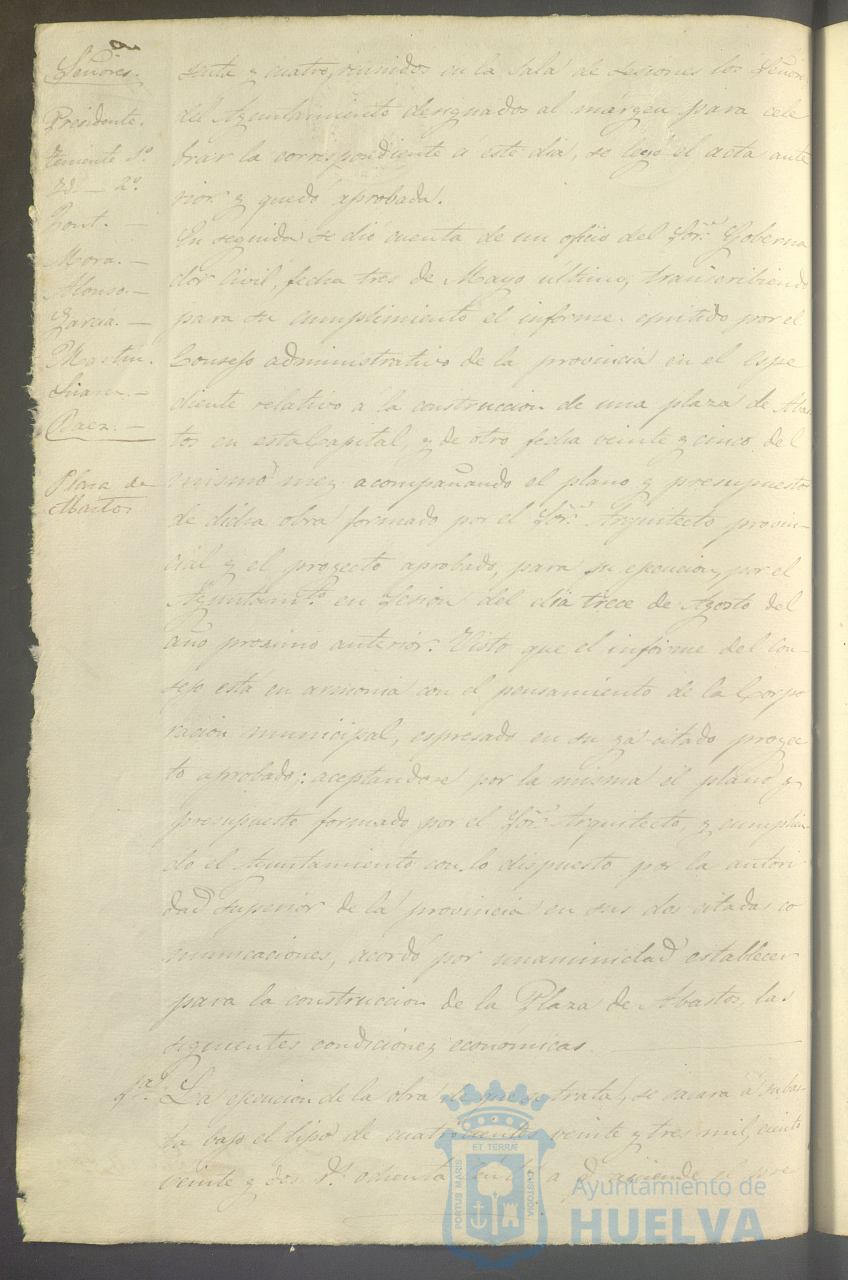 Señores.
Presidente.
Teniente 1º
Yd. — 2º
Pont. —
Mora. —
Alonso. —
Garcia. —
Martin.
Suarez. —
Baez. —
Plaza de
Abastos
senta y cuatro, reunidos en la Sala de sesiones los Señores
del Ayuntamiento designados al márgen para cele
brar la correspondiente á este dia, se leyó el acta ante
rior y quedó aprobada.
En seguida se dió cuenta de un oficio del Sor. Goberna
dor Civil, fecha tres de Mayo último, transcribiendo
para su cumplimiento el informe emitido por el
Consejo administrativo de la provincia en el espe
diente relativo á la construccion de una plaza de Abas
tos en esta Capital, y de otro fecha veinte y cinco del
mismo mes acompañando el plano y presupuesto
de dicha obra formado por el Sor. Arquitecto provin-
cial y el proyecto aprobado, para su ejecucion, por el
Ayuntamto. en Sesion del dia trece de Agosto del
año prosimo anterior. Visto que el informe del Con-
sejo está en armonia con el pensamiento de la Corpo
racion municipal, espresado en su ya citado proyec
to aprobado: aceptandose por la misma el plano y
presupuesto formado por el Sor. Arquitecto, y cumplien-
do el Ayuntamiento con lo dispuesto por la autori
dad Superior de la provincia en sus dos citadas co
municaciones, acordó por unanimidad establecer
para la construccion de la Plaza de Abastos, las
siguientes condiciones económicas.
1ª La ejecucion de la obra de que se trata, se sacara á subas-
ta bajo el tipo de cuatrocientos veinte y tres mil, ciento
veinte y dos rs. ochenta á q. asciende el pre
ET TERRÆ
PORTUS MARIS
CUSTODIA
Ayuntamiento de
HUELVA